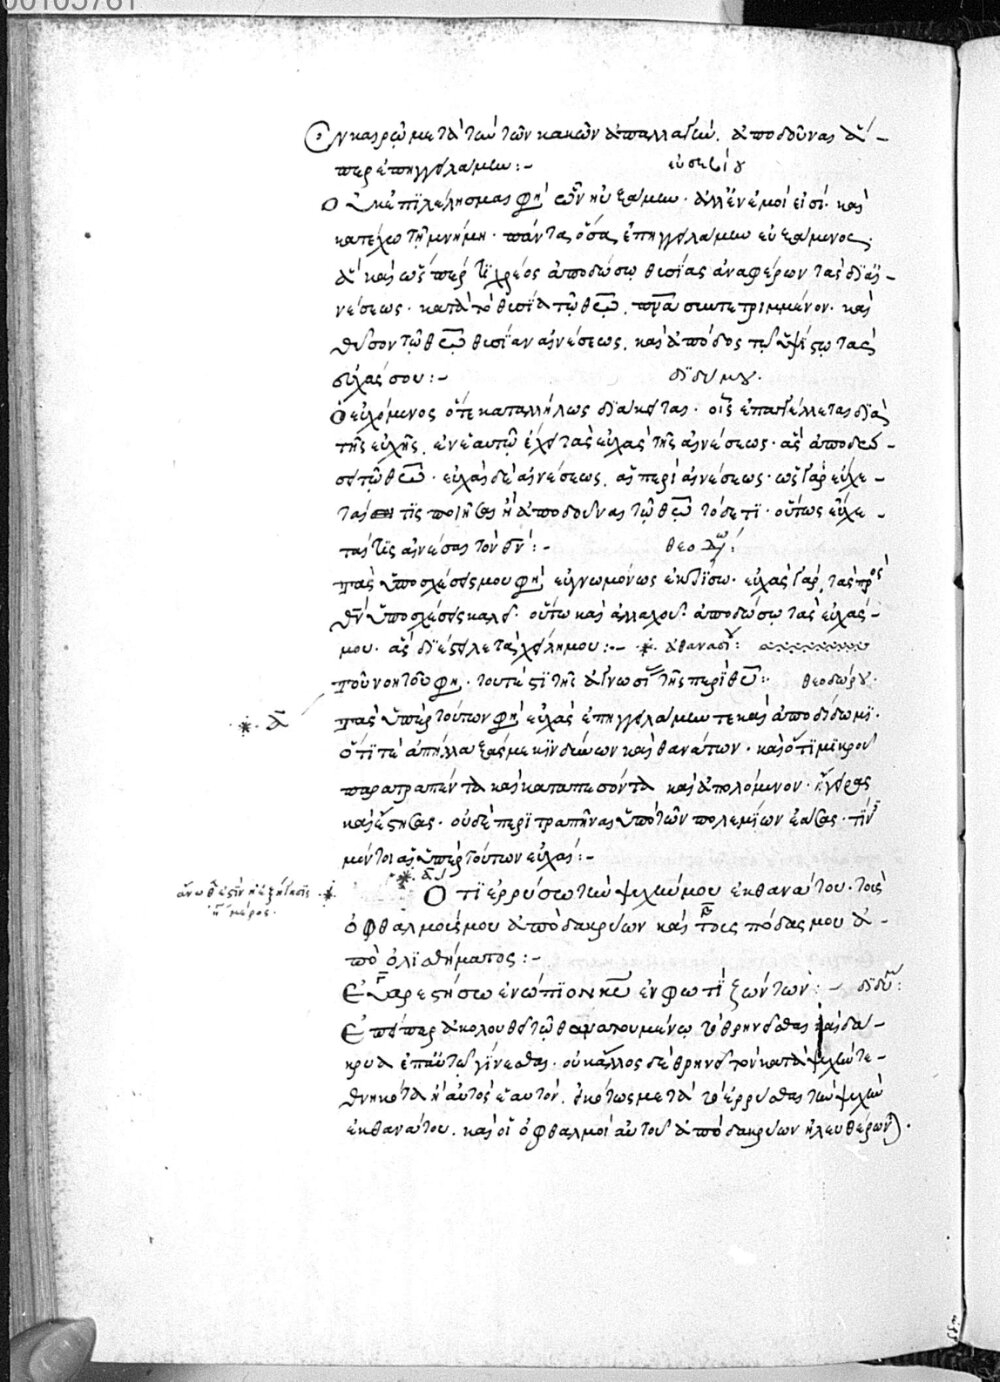 00105761
ἐν καιρῷ μετὰ τὴν τῶν κακῶν ἀπαλλαγὴν. ἀποδοῦναι ἅ-
περ ἐπηγγειλάμην :- εὐσεβίου
Οὐκ ἐπιλέλησμαι φησὶ ὧν ηὐξάμην· ἀλλ' ἐν ἐμοί εἰσί· καὶ
κατέχω τῇ μνήμῃ· πάντα ὅσα ἐπηγγειλάμην εὐξάμενος·
ἃ καὶ ὥσπερ τι χρέος ἀποδώσω θυσίας ἀναφέρων τὰς δι' αἰ-
νέσεως· κατὰ τὸ θυσία τῷ θῶ, πνα συντετριμμένον· καὶ
θῦσον τῷ θῶ θυσίαν αἰνέσεως, καὶ ἀπόδος τῷ ὑψίστῳ τὰς
εὐχάς σου :- διδύμου·
Ὁ εὐχόμενος ὅτε καταλλήλως διάκειται· οἷς ἐπαγγέλλεται διὰ
τῆς εὐχῆς, ἐν ἑαυτῷ ἔχει τὰς εὐχὰς τῆς αἰνέσεως· ἃς ἀποδώ-
σει τῷ θῶ· εὐχὰς δὲ αἰνέσεως, ἃς περὶ αἰνέσεως· ὡς γὰρ εὔχε-
ται τὶς ποιῆσαι ἢ ἀποδοῦναι τῷ θῶ τόδε τι· οὕτως εὔχε-
ταί τις αἰνέσαι τὸν θν :- θεοδώ:
τὰς ὑποσχέσεις μου φησὶ εὐγνωμόνως ἐκτίσω· εὐχὰς γὰρ, τὰς πρὸς
θν ὑποσχέσεις καλεῖ· οὕτω καὶ ἀλλαχοῦ· ἀποδώσω τὰς εὐχάς
μου· ἃς διέστειλε τὰ χείλη μου :- ἀθανασίου:
τοῦ νοητοῦ φησι, τουτέστι τῆς ἀγνωσίας τῆς περὶ θυ: θεοδώρου·
δ
τὰς ὑπὲρ τούτων φησὶ εὐχὰς ἐπηγγειλάμην τε καὶ ἀποδίδωμι·
ὅτι τὲ ἀπήλλαξάς με κινδύνων καὶ θανάτων· καὶ ὅτι μικροῦ
παρατραπέντα καὶ καταπεσόντα καὶ ἀπολόμενον· ἤγειρας
καὶ ἔστησας· οὐδὲ περιτραπῆναι ὑπὸ τῶν πολεμίων ἔασας·
μέντοι ἃς ὑπὲρ τούτων εὐχάς :-
ἄνωθέν ἐστιν ἡ ἐξήγησις
Ὅτι ἐρρύσω τὴν ψυχήν μου ἐκ θανάτου· τοὺς
ὀφθαλμούς μου ἀπὸ δακρύων καὶ τοὺς πόδας μου ἀ-
πὸ ὀλισθήματος :-
Εὐαρεστήσω ἐνώπιον κυ ἐν φωτὶ ζώντων :- διδύ:
Ἐπείπερ ἀκολουθεῖ τῷ θανατουμένῳ τὸ θρηνεῖσθαι καὶ δά-
κρυα ἐπ' αὐτῷ γίνεσθαι· οὐκ ἄλλος δὲ θρηνεῖ τὸν κατὰ ψυχὴν τε-
θνηκότα ἢ αὐτὸς ἑαυτόν. εἰκότως μετὰ τὸ ἐρρύσθαι τὴν ψυχὴν
ἐκ θανάτου, καὶ οἱ ὀφθαλμοὶ αὐτοῦ ἀπὸ δακρύων ἠλευθέρωνται·